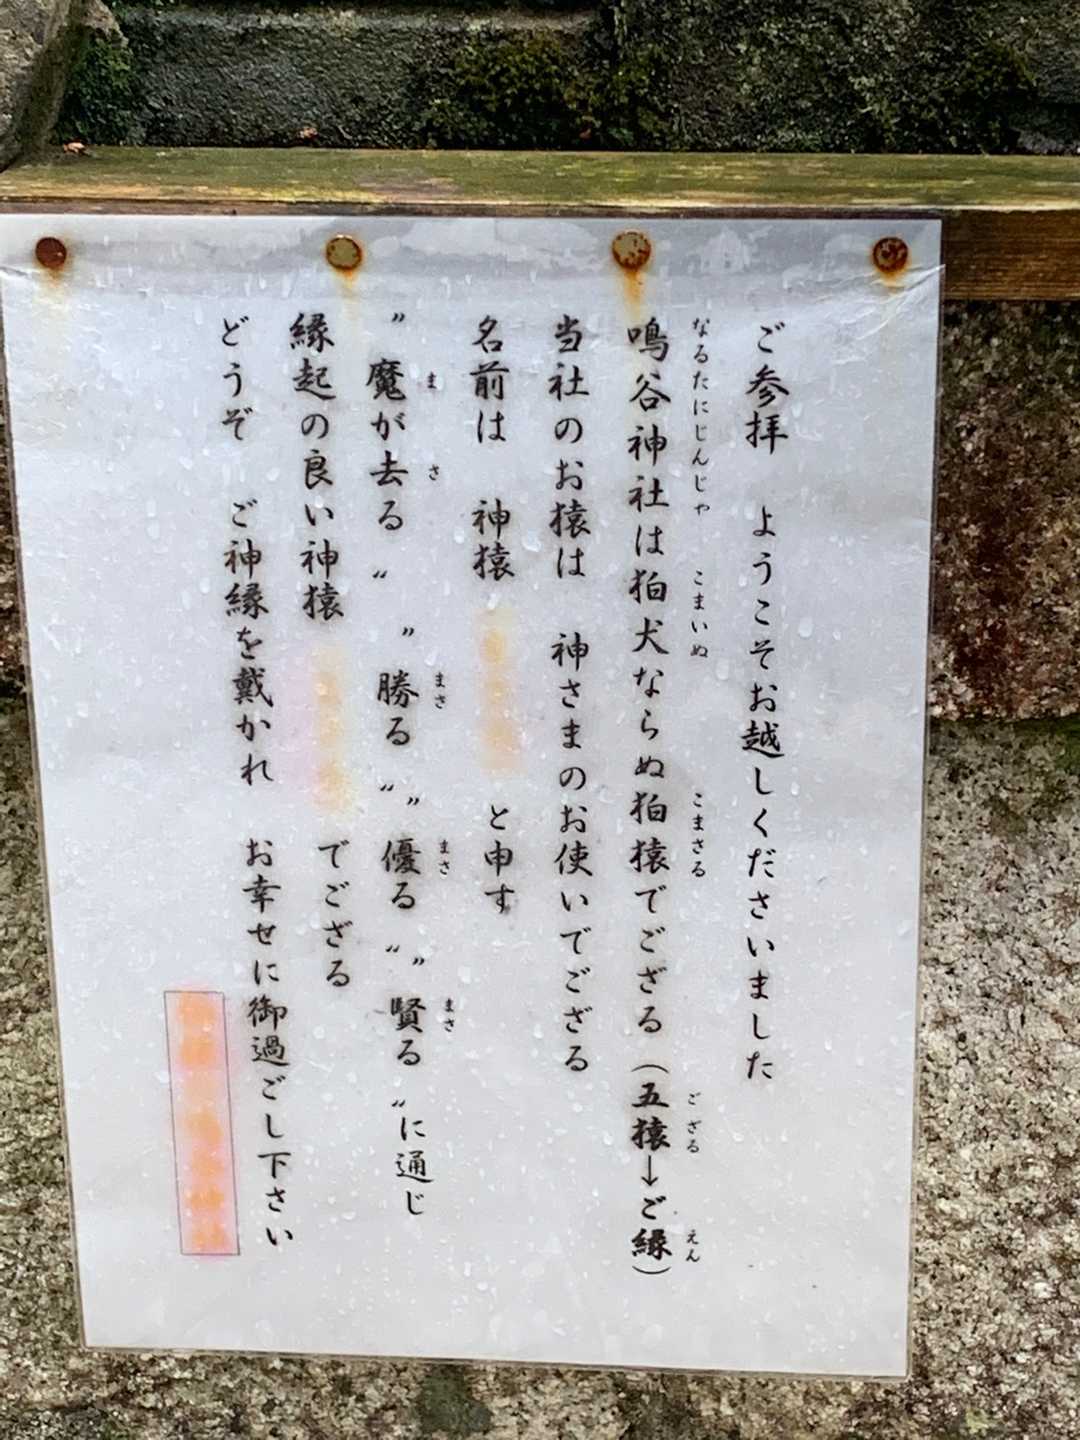 ご参拝　ようこそお越しくださいました
鳴谷神社は狛犬ならぬ狛猿でござる（五猿→ご縁）
なるたにじんじゃ　こまいぬ　こまさる　ござる　えん
当社のお猿は　神さまのお使いでござる
名前は　神猿　と申す
〝魔が去る〟〝勝る〟〝優る〟〝賢る〟に通じ
ま　さ　まさ　まさ　まさ
縁起の良い神猿　でござる
どうぞ　ご神縁を戴かれ　お幸せに御過ごし下さい